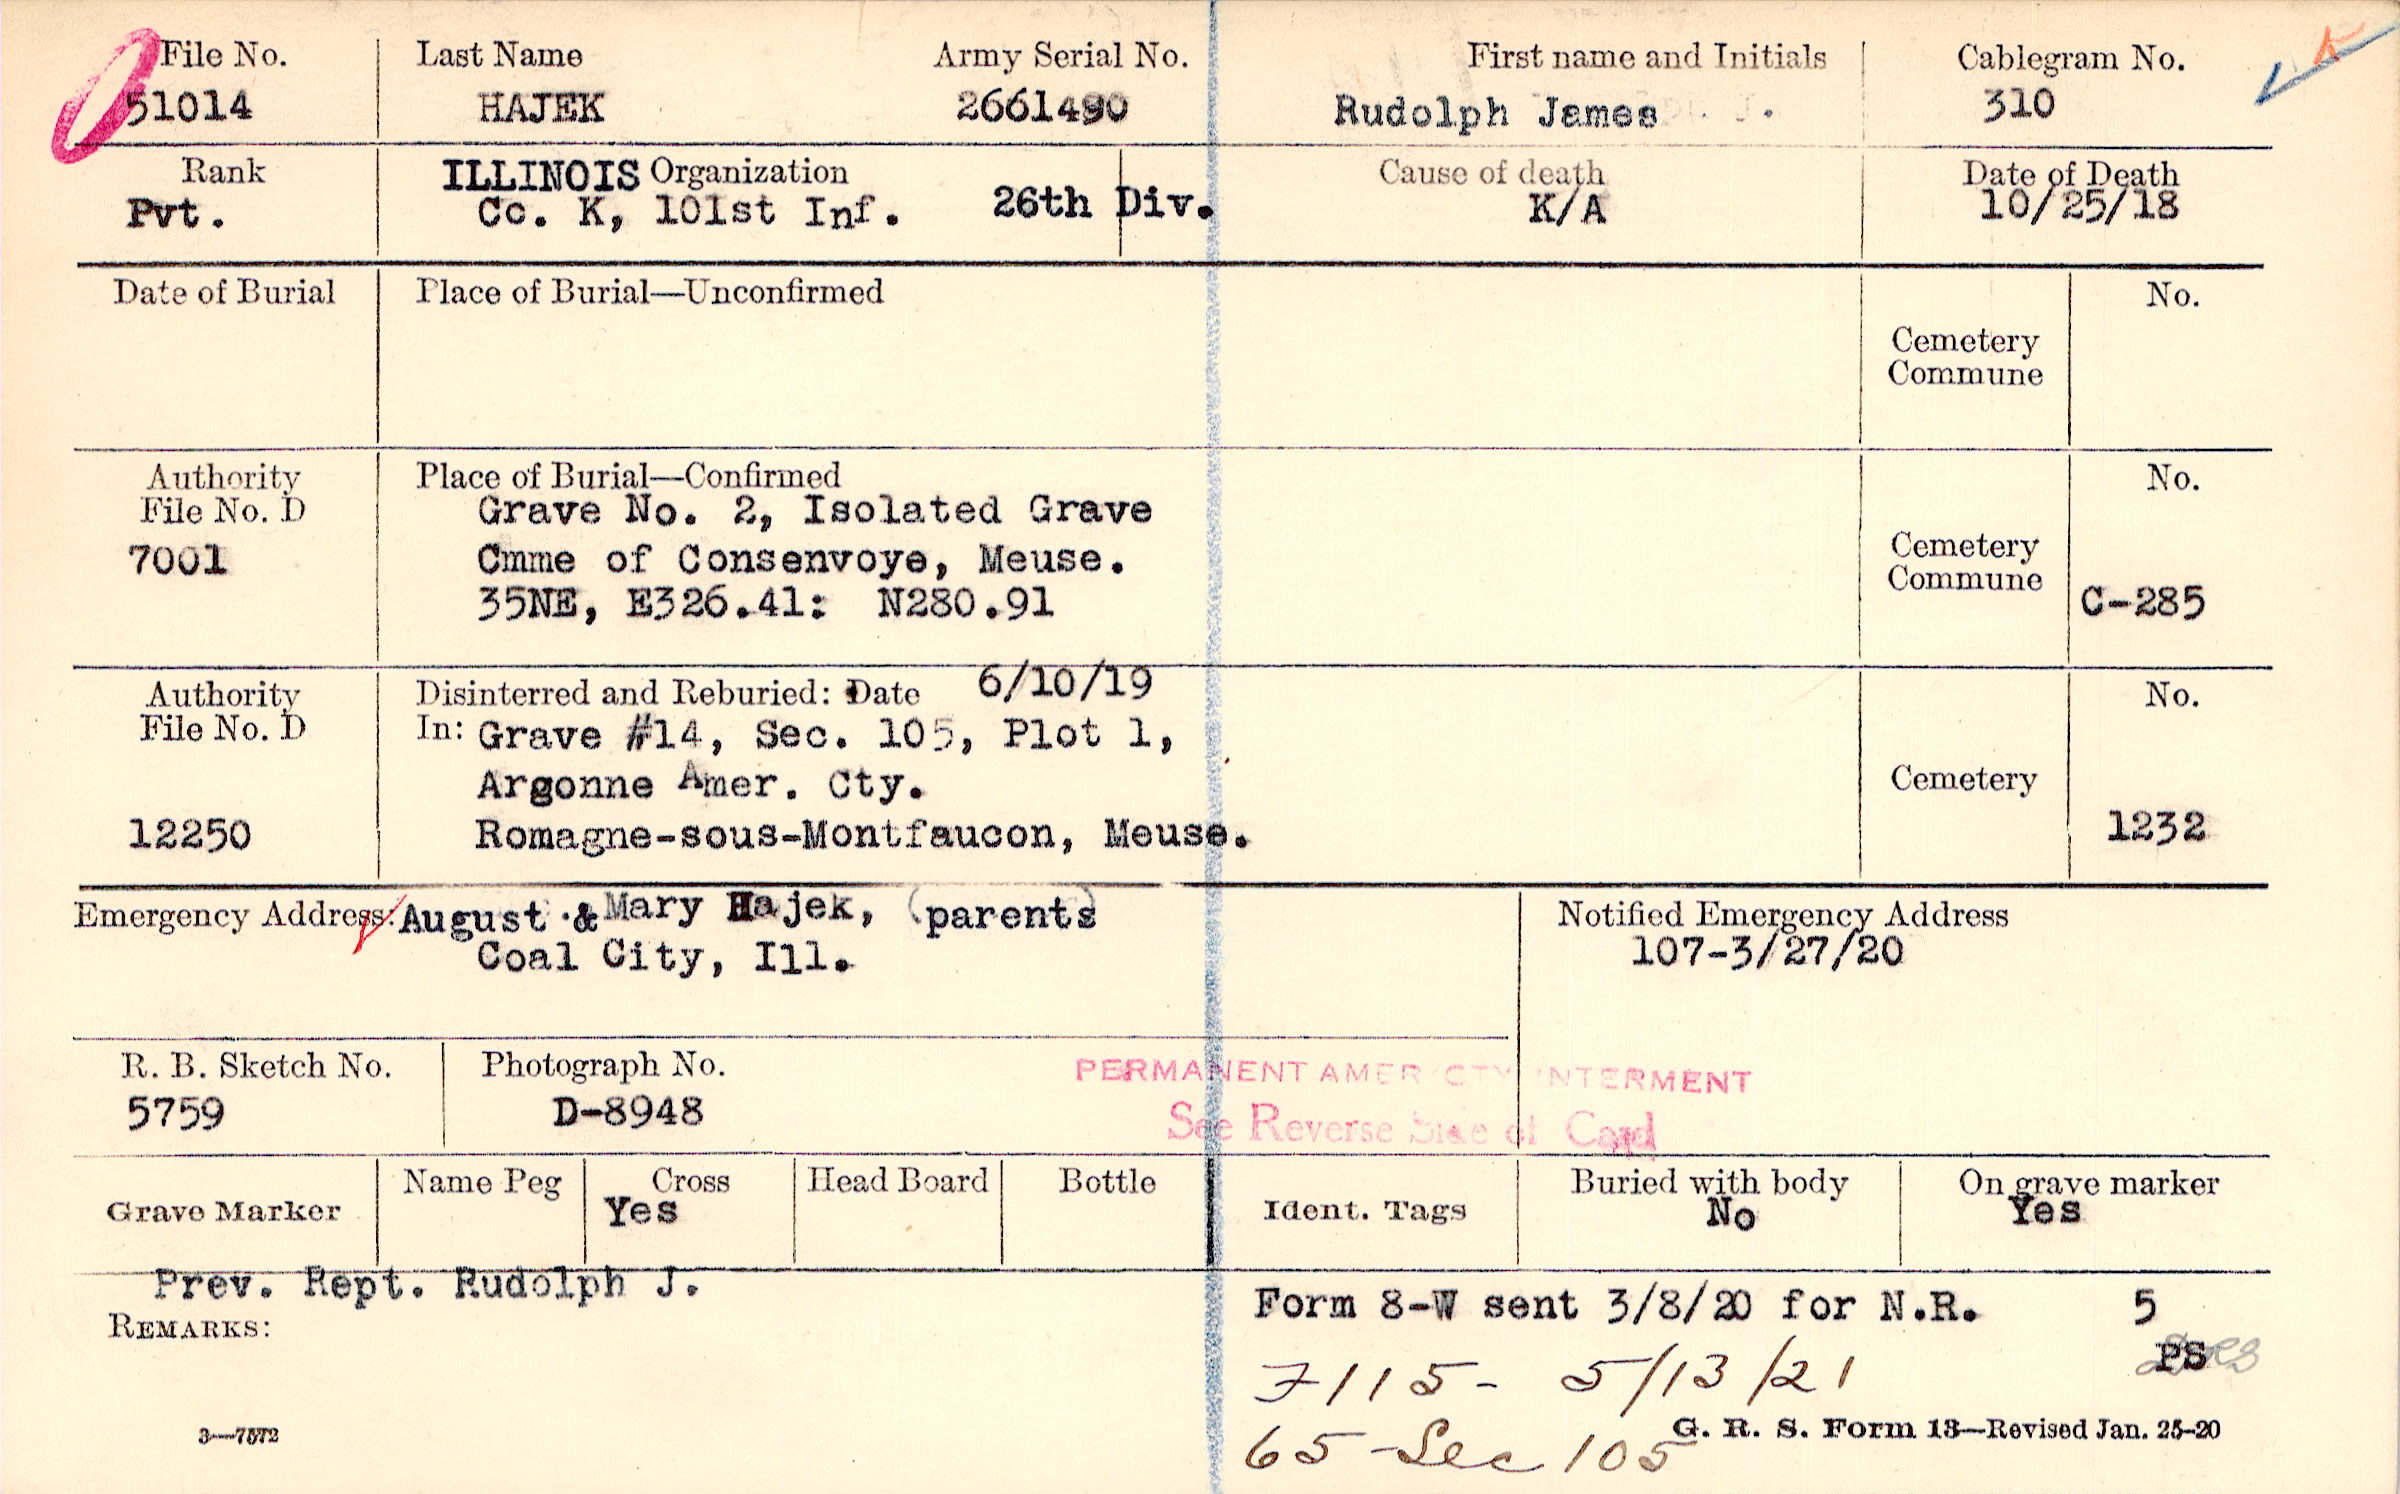 File No. Last Name Army Serial No. First name and Initials Cablegram No. K
51014 HAJEK 2661490 Rudolph James J. 310
Rank ILLINOIS Organization Cause of death Date of Death
Pvt. Co. K, 101st Inf. 26th Div. K/A 10/25/18
Date of Burial Place of Burial—Unconfirmed No.
Cemetery
Commune
Authority Place of Burial—Confirmed No.
File No. D Grave No. 2, Isolated Grave
7001 Cmme of Consenvoye, Meuse. Cemetery
35NE, E326.41: N280.91 Commune C-285
Authority Disinterred and Reburied: Date 6/10/19 No.
File No. D In: Grave #14, Sec. 105, Plot 1,
Argonne Amer. Cty. Cemetery
12250 Romagne-sous-Montfaucon, Meuse. 1232
Emergency Address: August & Mary Hajek, (parents) Notified Emergency Address
Coal City, Ill. 107-3/27/20
R. B. Sketch No. Photograph No. PERMANENT AMER CTY INTERMENT
5759 D-8948 See Reverse Side of Card
Name Peg Cross Head Board Bottle Buried with body On grave marker
Grave Marker Yes Ident. Tags No Yes
Prev. Rept. Rudolph J.
REMARKS: Form 8-W sent 3/8/20 for N.R. 5
PS
7115- 5/13/21
3—7572 G. R. S. Form 13—Revised Jan. 25-20
65-Sec 105